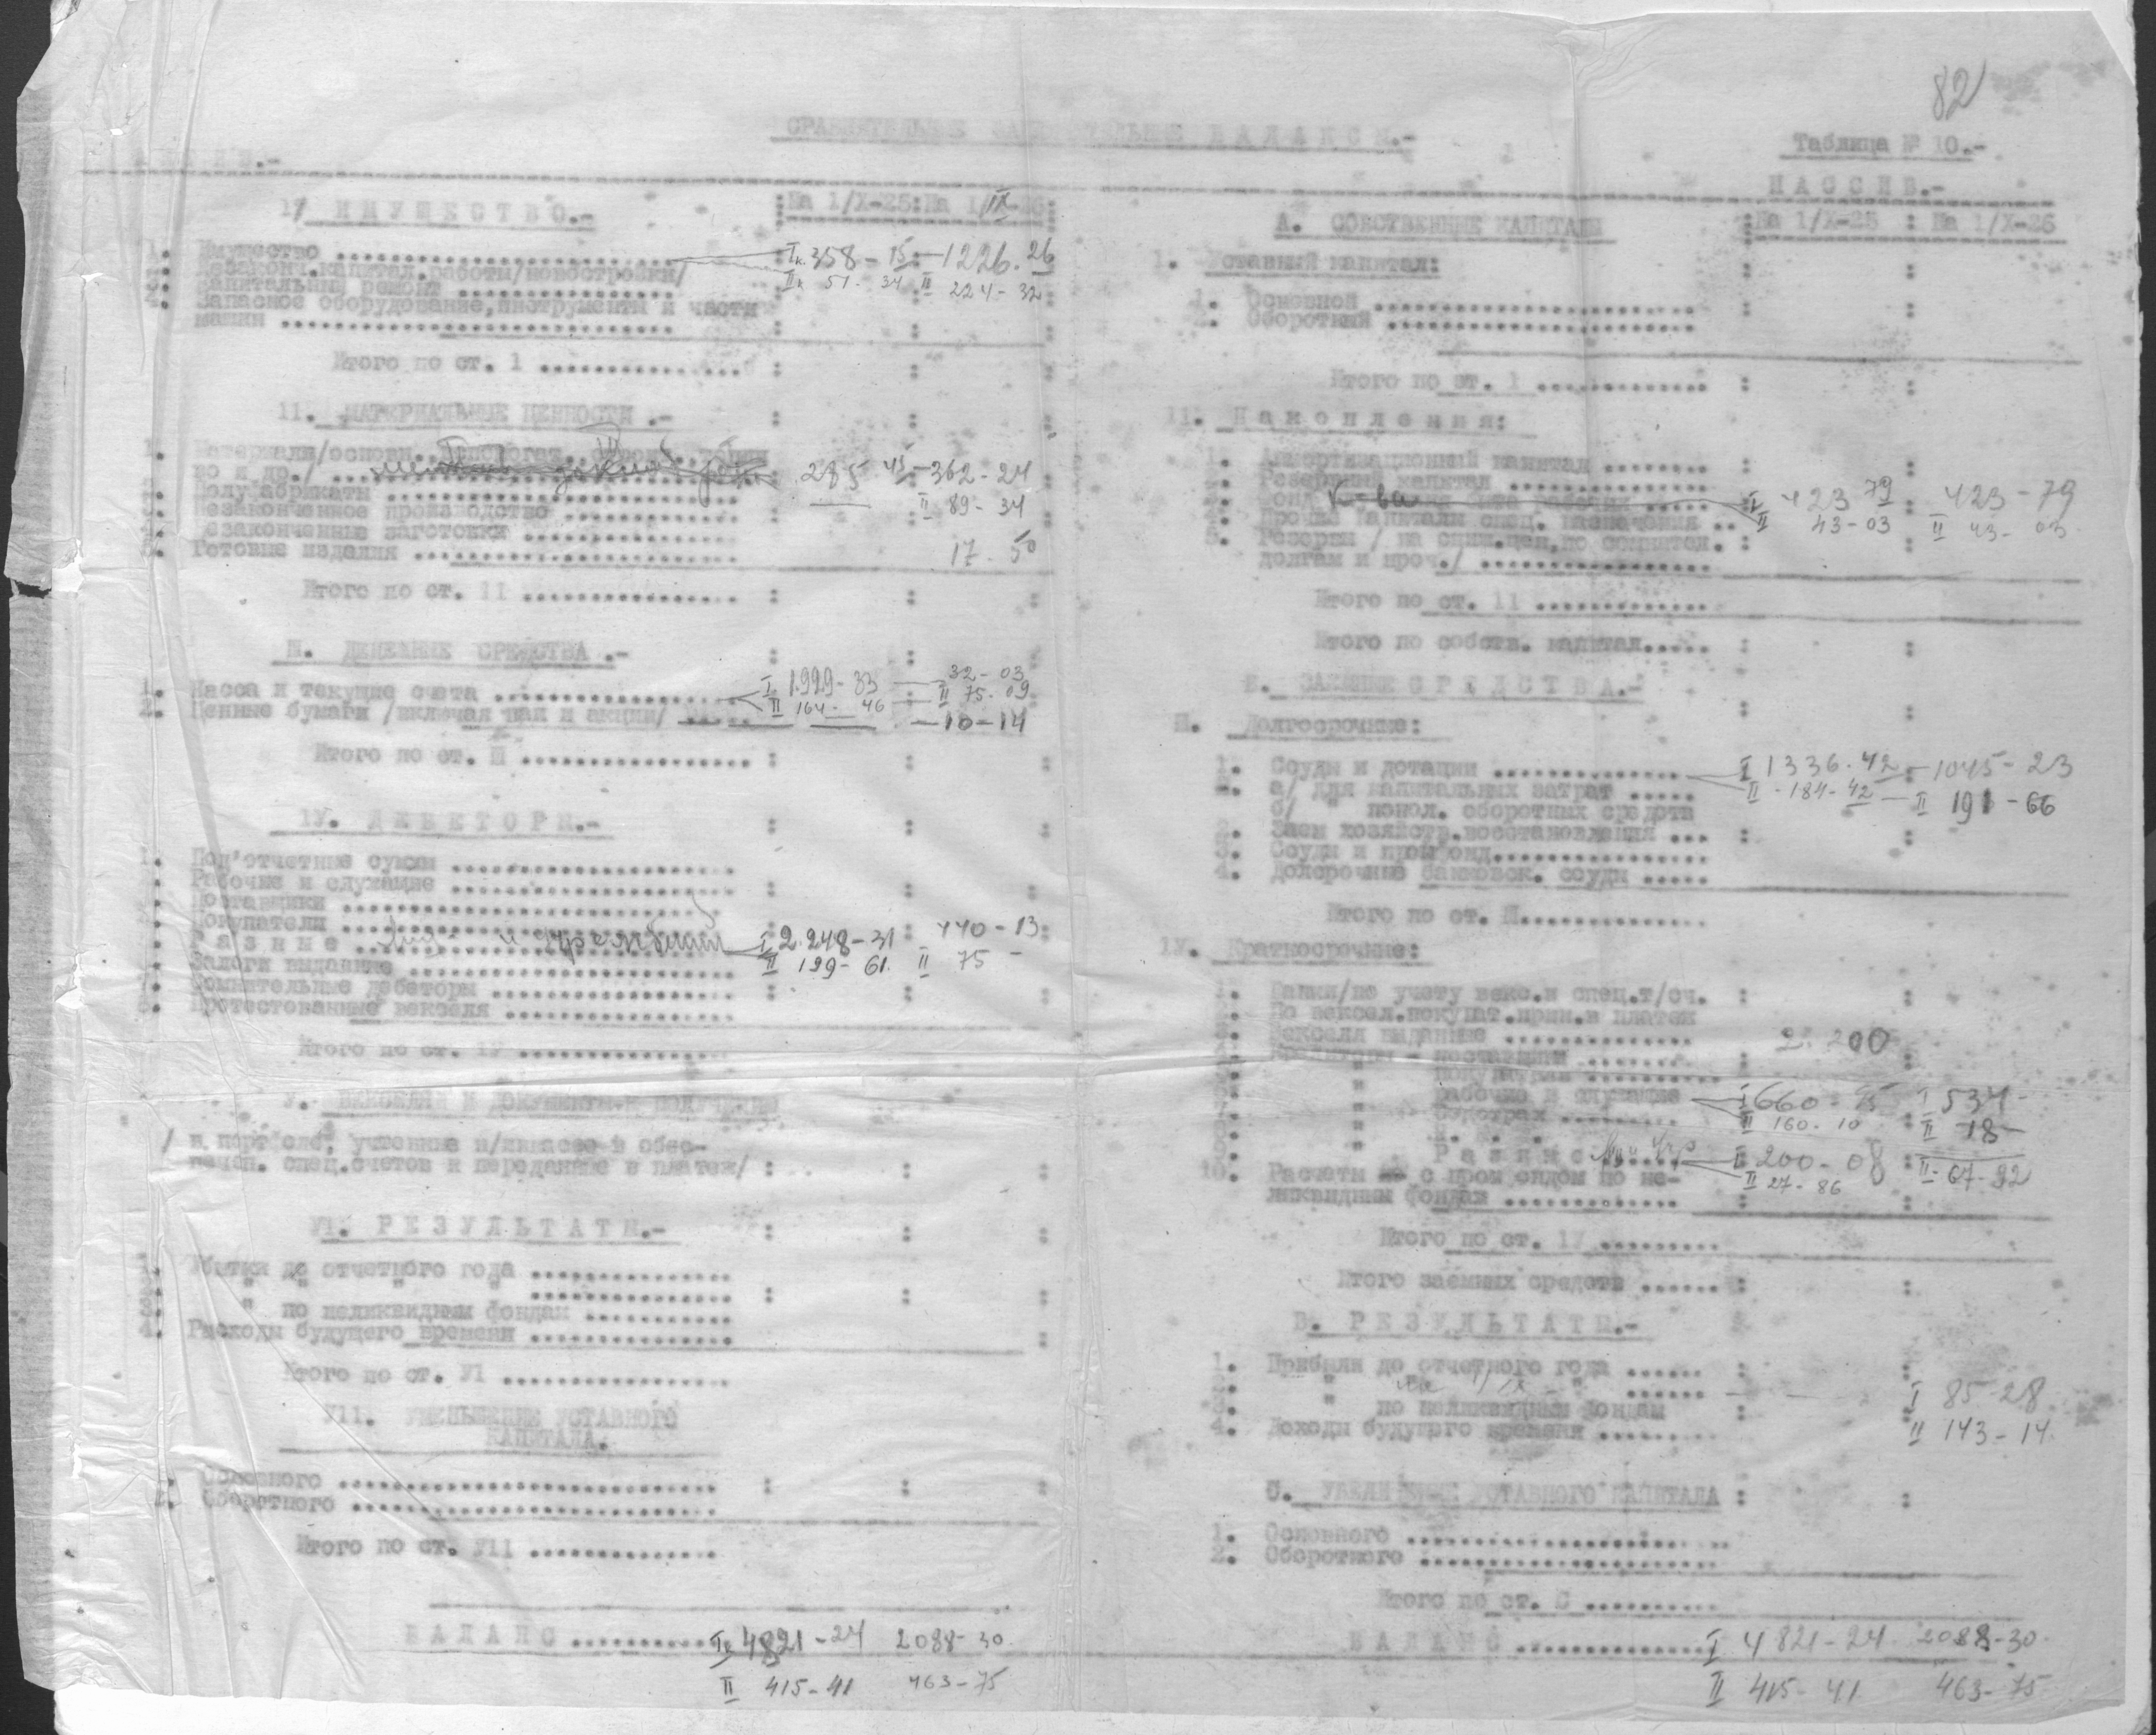 82
СРАВНИТЕЛЬНЫЕ ЗАКЛЮЧИТЕЛЬНЫЕ БАЛАНСЫ.-
Таблица № 10.-
ПАССИВ.-
1/ ИМУЩЕСТВО.- :На 1/Х-25:На 1/IX-26:
1. Имущество .......... Iк. 358-15 : 1226.26
капитал.работы/новостройки/ IIк 51-34 II 224-32
3. Капитальный ремонт ..........
4. Запасное оборудование,инструменты и части
машин ..........
Итого по ст. 1 ..........
11. МАТЕРИАЛЬНЫЕ ЦЕННОСТИ .-
1. Материалы/основн.,вспомогат.,
во и др./ .......... 285 45 362-24
2. Полуфабрикаты .......... II 89-34
3. Незаконченное производство ..........
4. Незаконченные заготовки ..........
5. Готовые изделия .......... 17-50
Итого по ст. 11 ..........
Ш. ДЕНЕЖНЫЕ СРЕДСТВА .-
1. Касса и текущие счета .......... I 1929-33 32-03
II 164-46 II 75-09
2. Ценные бумаги /включая паи и акции/ ..... 10-14
Итого по ст. Ш ..........
1У. ДЕБЕТОРЫ.-
1. Под'отчетные суммы ..........
Рабочие и служащие ..........
Поставщики ..........
Покупатели ..........
Разные .......... I 2.248-31 440-13
Залоги выданные .......... II 199-61 II 75 -
7. Сомнительные дебеторы ..........
8. Протестованные векселя ..........
Итого по ст. 1У ..........
У. ВЕКСЕЛЯ И ДОКУМЕНТЫ К ПОЛУЧЕНИЮ
/в портфеле, учтенные и/инкассо в обес-
печен. спец.счетов и переданные в платеж/
У1. РЕЗУЛЬТАТЫ.-
1. Убытки до отчетного года ..........
2. " " " " ..........
3. " по неликвидным фондам ..........
4. Расходы будущего времени ..........
Итого по ст. У1 ..........
У11. УМЕНЬШЕНИЕ УСТАВНОГО
КАПИТАЛА.
1. Основного ..........
2. Оборотного ..........
Итого по ст. У11 ..........
БАЛАНС .......... I 4821-24 2088-30
II 415-41 463-75
А. СОБСТВЕННЫЕ КАПИТАЛЫ :На 1/Х-25 : На 1/Х-26
1. Уставный капитал:
1. Основной ..........
2. Оборотный ..........
Итого по ст. 1 ..........
11. Накопления:
1. Амортизационный капитал ..........
2. Резервный капитал ..........
I 423 79 423-79
4. Прочие капиталы спец. назначения .. II 43-03 II 43-03
5. Резервы / на сниж.цен,по сомнител.
долгам и проч./ ..........
Итого по ст. 11 ..........
Итого по собств. капитал.....
Б. ЗАЕМНЫЕ СРЕДСТВА.-
Ш. Долгосрочные:
1. Ссуды и дотации .......... I 1336.42 1045-23
а/ для капитальных затрат ..... II 184-42 II 191-66
б/ " попол. оборотных средств
2. Заем хозяйств.восстановления ...
3. Ссуды и промфонд..........
4. Долсрочные банковск. ссуды .....
Итого по ст. Ш..........
1У. Краткосрочные:
1. Банки/по учету векс.и спец.т/сч.
2. По вексел.покупат.прин.в платеж
3. Векселя выданные .......... 2.200
4. Кредиторы - поставщики ..........
" покупатели ..........
" рабочие и служащие I 660-75 I 534-
" Соцстрах .......... II 160.10 II 18-
" Разные I 200-08 II-67-92
10. Расчеты с промфондом по не- II 27-86
ликвидным фондам ..........
Итого по ст. 1У ..........
Итого заемных средств ......
В. РЕЗУЛЬТАТЫ.-
1. Прибыли до отчетного года ......
2. " на 1/IX " ...... I 85-28
3. " по неликвидным фондам
4. Доходы будущего времени .......... II 143-14
С. УВЕЛИЧЕНИЕ УСТАВНОГО КАПИТАЛА
1. Основного ..........
2. Оборотного ..........
Итого по ст. С ..........
БАЛАНС .......... I 4821-24 2088-30
II 415-41 463-75